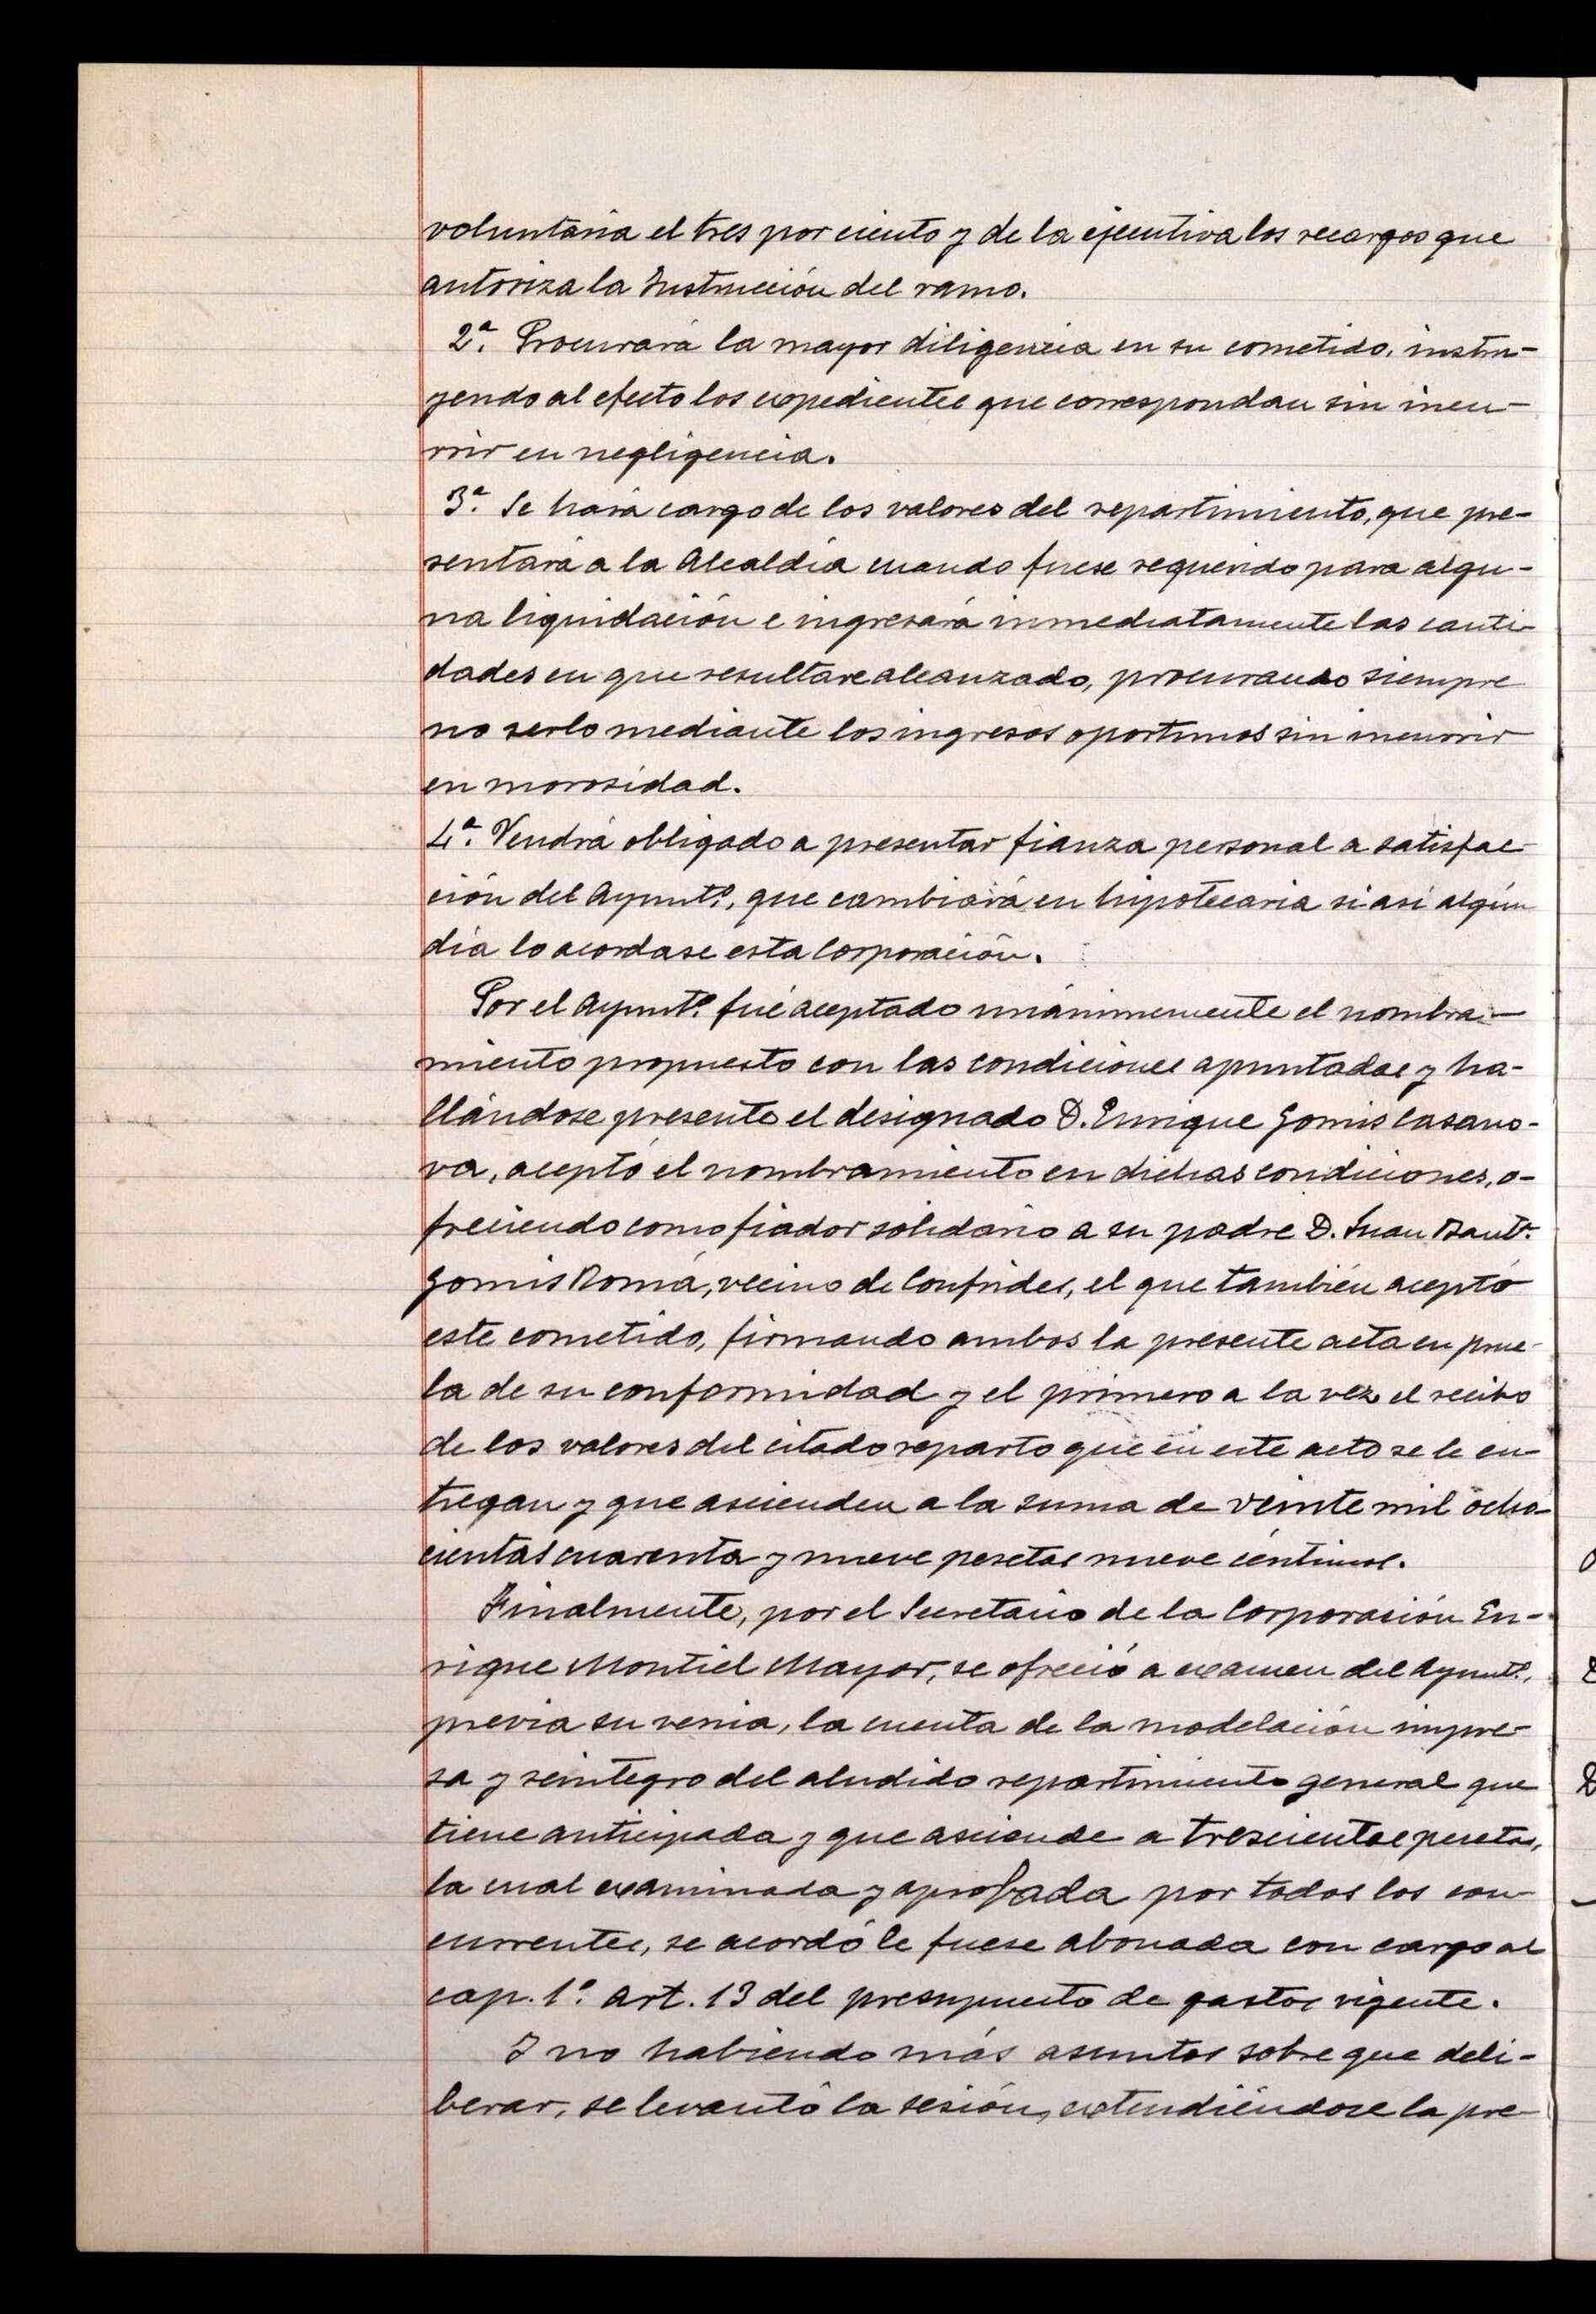 voluntaria el tres por ciento y de la ejecutiva los recargos que
autoriza la Instrucción del ramo.
2ª. Procurará la mayor diligencia en su cometido, instru-
yendo al efecto los expedientes que correspondan sin incu-
rrir en negligencia.
3ª. Se hará cargo de los valores del repartimiento, que pre-
sentará a la Alcaldía cuando fuese requerido para algu-
na liquidación e ingresará inmediatamente las canti-
dades en que resultare alcanzado, procurando siempre
no serlo mediante los ingresos oportunos sin incurrir
en morosidad.
4ª. Vendrá obligado a presentar fianza personal a satisfac-
ción del Ayuntº., que cambiará en hipotecaria si así algún
día lo acordase esta Corporación.
Por el Ayuntº. fué aceptado unánimemente el nombra-
miento propuesto con las condiciones apuntadas y ha-
llándose presente el designado D. Enrique Gomis Casano-
va, aceptó el nombramiento en dichas condiciones, o-
freciendo como fiador solidario a su padre D. Juan Bautª.
Gomis Romá, vecino de Confrides, el que también aceptó
este cometido, firmando ambos la presente acta en prue-
ba de su conformidad y el primero a la vez el recibo
de los valores del citado reparto que en este acto se le en-
tregan y que ascienden a la suma de veinte mil ocho-
cientas cuarenta y nueve pesetas nueve céntimos.
Finalmente, por el Secretario de la Corporación En-
rique Montiel Mayor, se ofreció a examen del Ayuntº.,
previa su venia, la cuenta de la modelación impre-
sa y reintegro del aludido repartimiento general que
tiene anticipada y que asciende a trescientas pesetas,
la cual examinada y aprobada por todos los con-
currentes, se acordó le fuese abonada con cargo al
cap. 1º. Art. 13 del presupuesto de gastos vigente.
Y no habiendo más asuntos sobre que deli-
berar, se levantó la sesión, extendiéndose la pre-